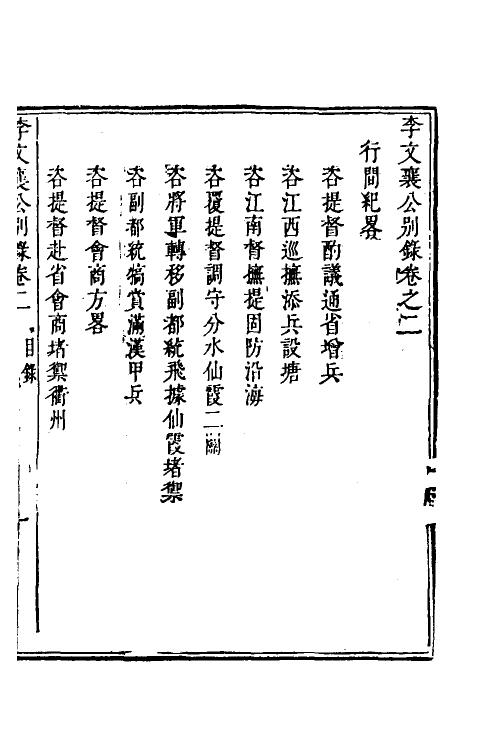 李文襄公別錄卷之二
行間紀畧
咨提督酌議通省增兵
咨江西巡撫添兵設塘
咨江南督撫提固防沿海
咨覆提督調守分水仙霞二關
咨將軍轉移副都統飛據仙霞堵禦
咨副都統犒賞滿漢甲兵
咨提督會商方畧
咨提督赴省會商堵禦衢州
李文襄公別錄卷二 目錄 一